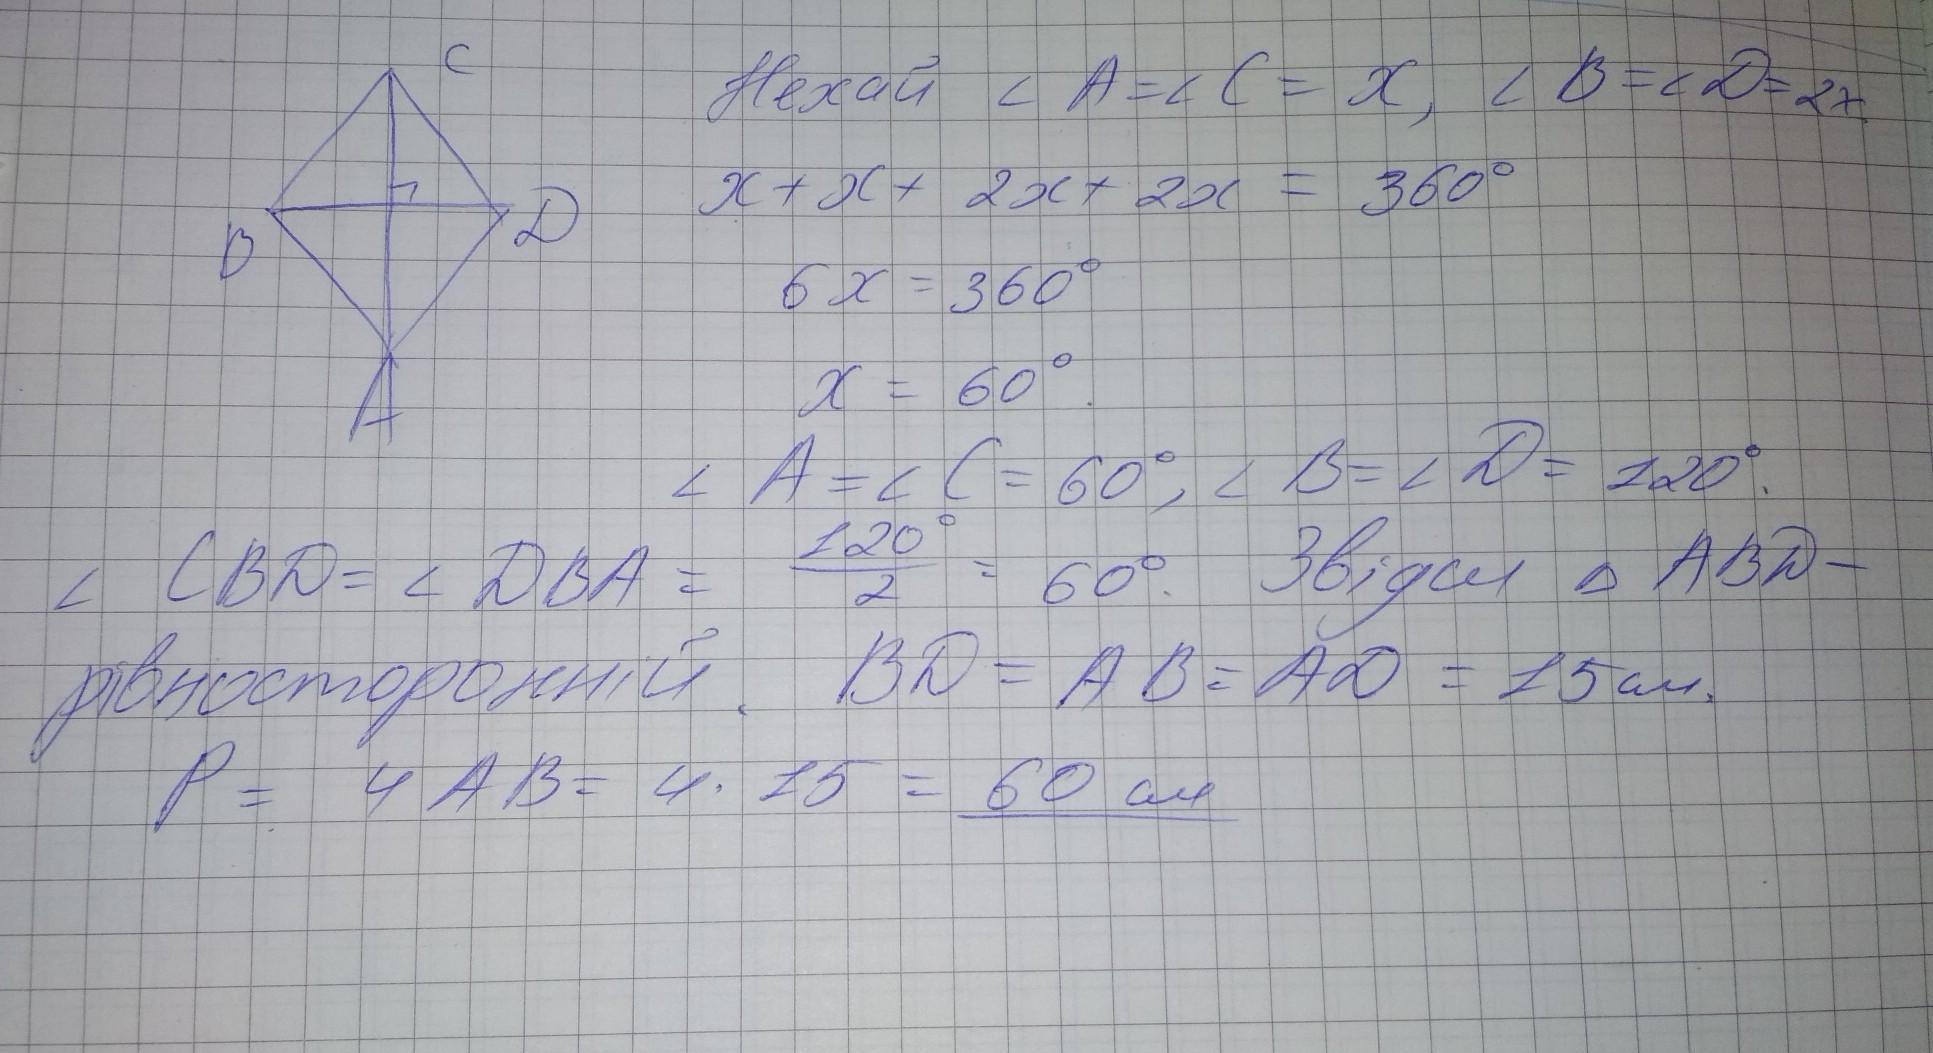 C
B
D
A
Нехай ∠ A = ∠ C = x, ∠ B = ∠ D = 2x
x + x + 2x + 2x = 360°
6x = 360°
x = 60°.
∠ A = ∠ C = 60°, ∠ B = ∠ D = 120°.
∠ CBD = ∠ DBA = 120°/2 = 60°. Звідси △ ABD –
рівносторонній. BD = AB = AD = 15 см.
P = 4 AB = 4 · 15 = 60 см